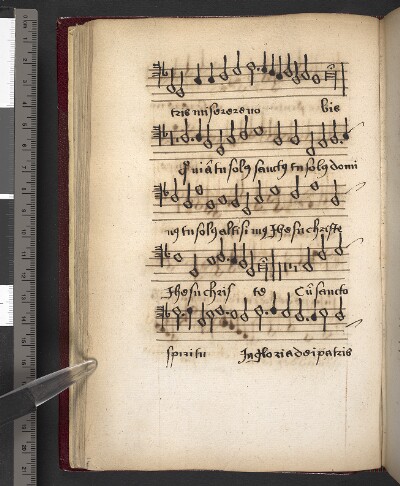 tris miserere no bis
Quiā tu solꝰ sanctꝰ tu solꝰ domi
nꝰ tu solꝰ altisi mꝰ Jhesu christe
Jhesu chris te Cū sancto
spiritu In gloria dei patris